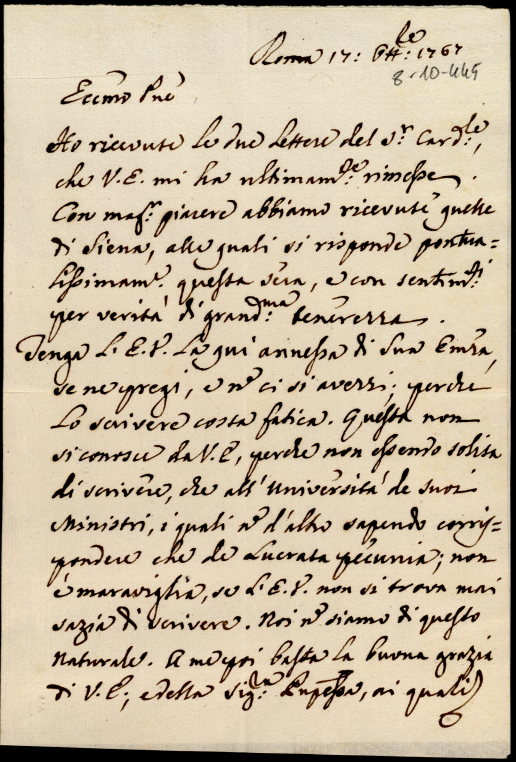 Roma 17: 8tt:le 1767
8-10-445
Eccmo Pne
Ho ricevute le due lettere del Sr Card:le,
che V.E. mi ha ultimam:te rimesse.
Con magr: piacere abbiamo ricevute quelle
di Siena, alle quali si risponde pontua=
lissimamte questa sera, e con sentim:ti
per verità di grand:ma tenerezza.
Tenga L'E.V. la qui annessa di Sua Emza,
se ne pregi, e nn ci si avezzi; perche
lo scrivere costa fatica. Questa non
si conosce da V.E., perche non essendo solita
di scrivere, che all'Università de suoi
Ministri, i quali nn d'altro sapendo corris=
pondere che de Lucrata pecunia; non
è maraviglia, se L'E.V. non si trova mai
sazia di scrivere. Noi nn siamo di questo
naturale. A me poi basta la buona grazia
di V.E., e della Sig:ra Pnpessa, ai quali